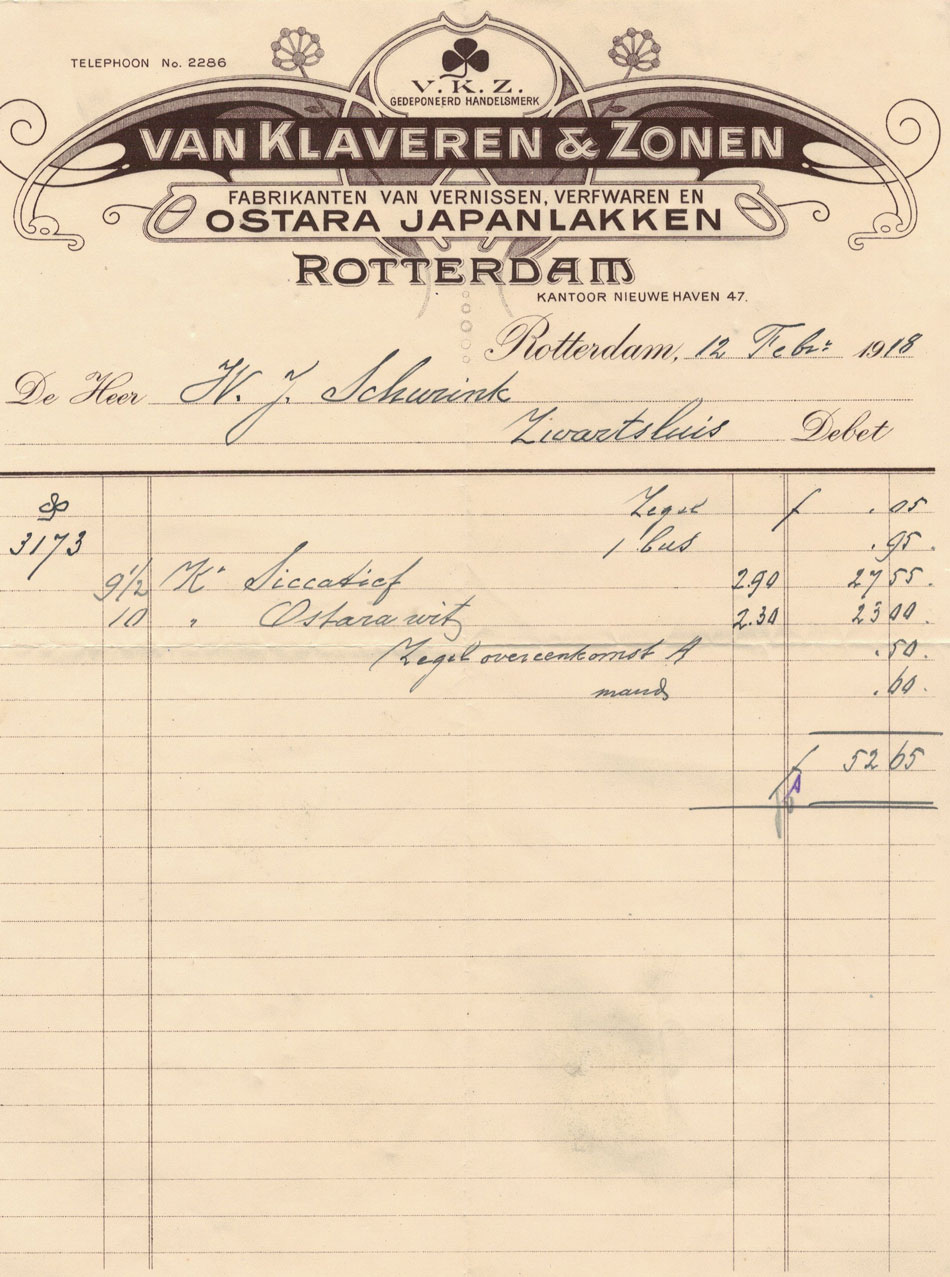 TELEPHOON No. 2286
V.K.Z.
GEDEPONEERD HANDELSMERK
VAN KLAVEREN & ZONEN
FABRIKANTEN VAN VERNISSEN, VERFWAREN EN
OSTARA JAPANLAKKEN
ROTTERDAM
KANTOOR NIEUWE HAVEN 47.
Rotterdam, 12 Febr: 1918
De Heer W. J. Schurink
Zwartsluis Debet
Zegel f .05
3173 1 bus .95.
9 1/2 K° Siccatief 2.90 27 55.
10 " Ostara wit 2.30 23 00.
Zegel overeenkomst A .50.
mand .60.
f 52 65